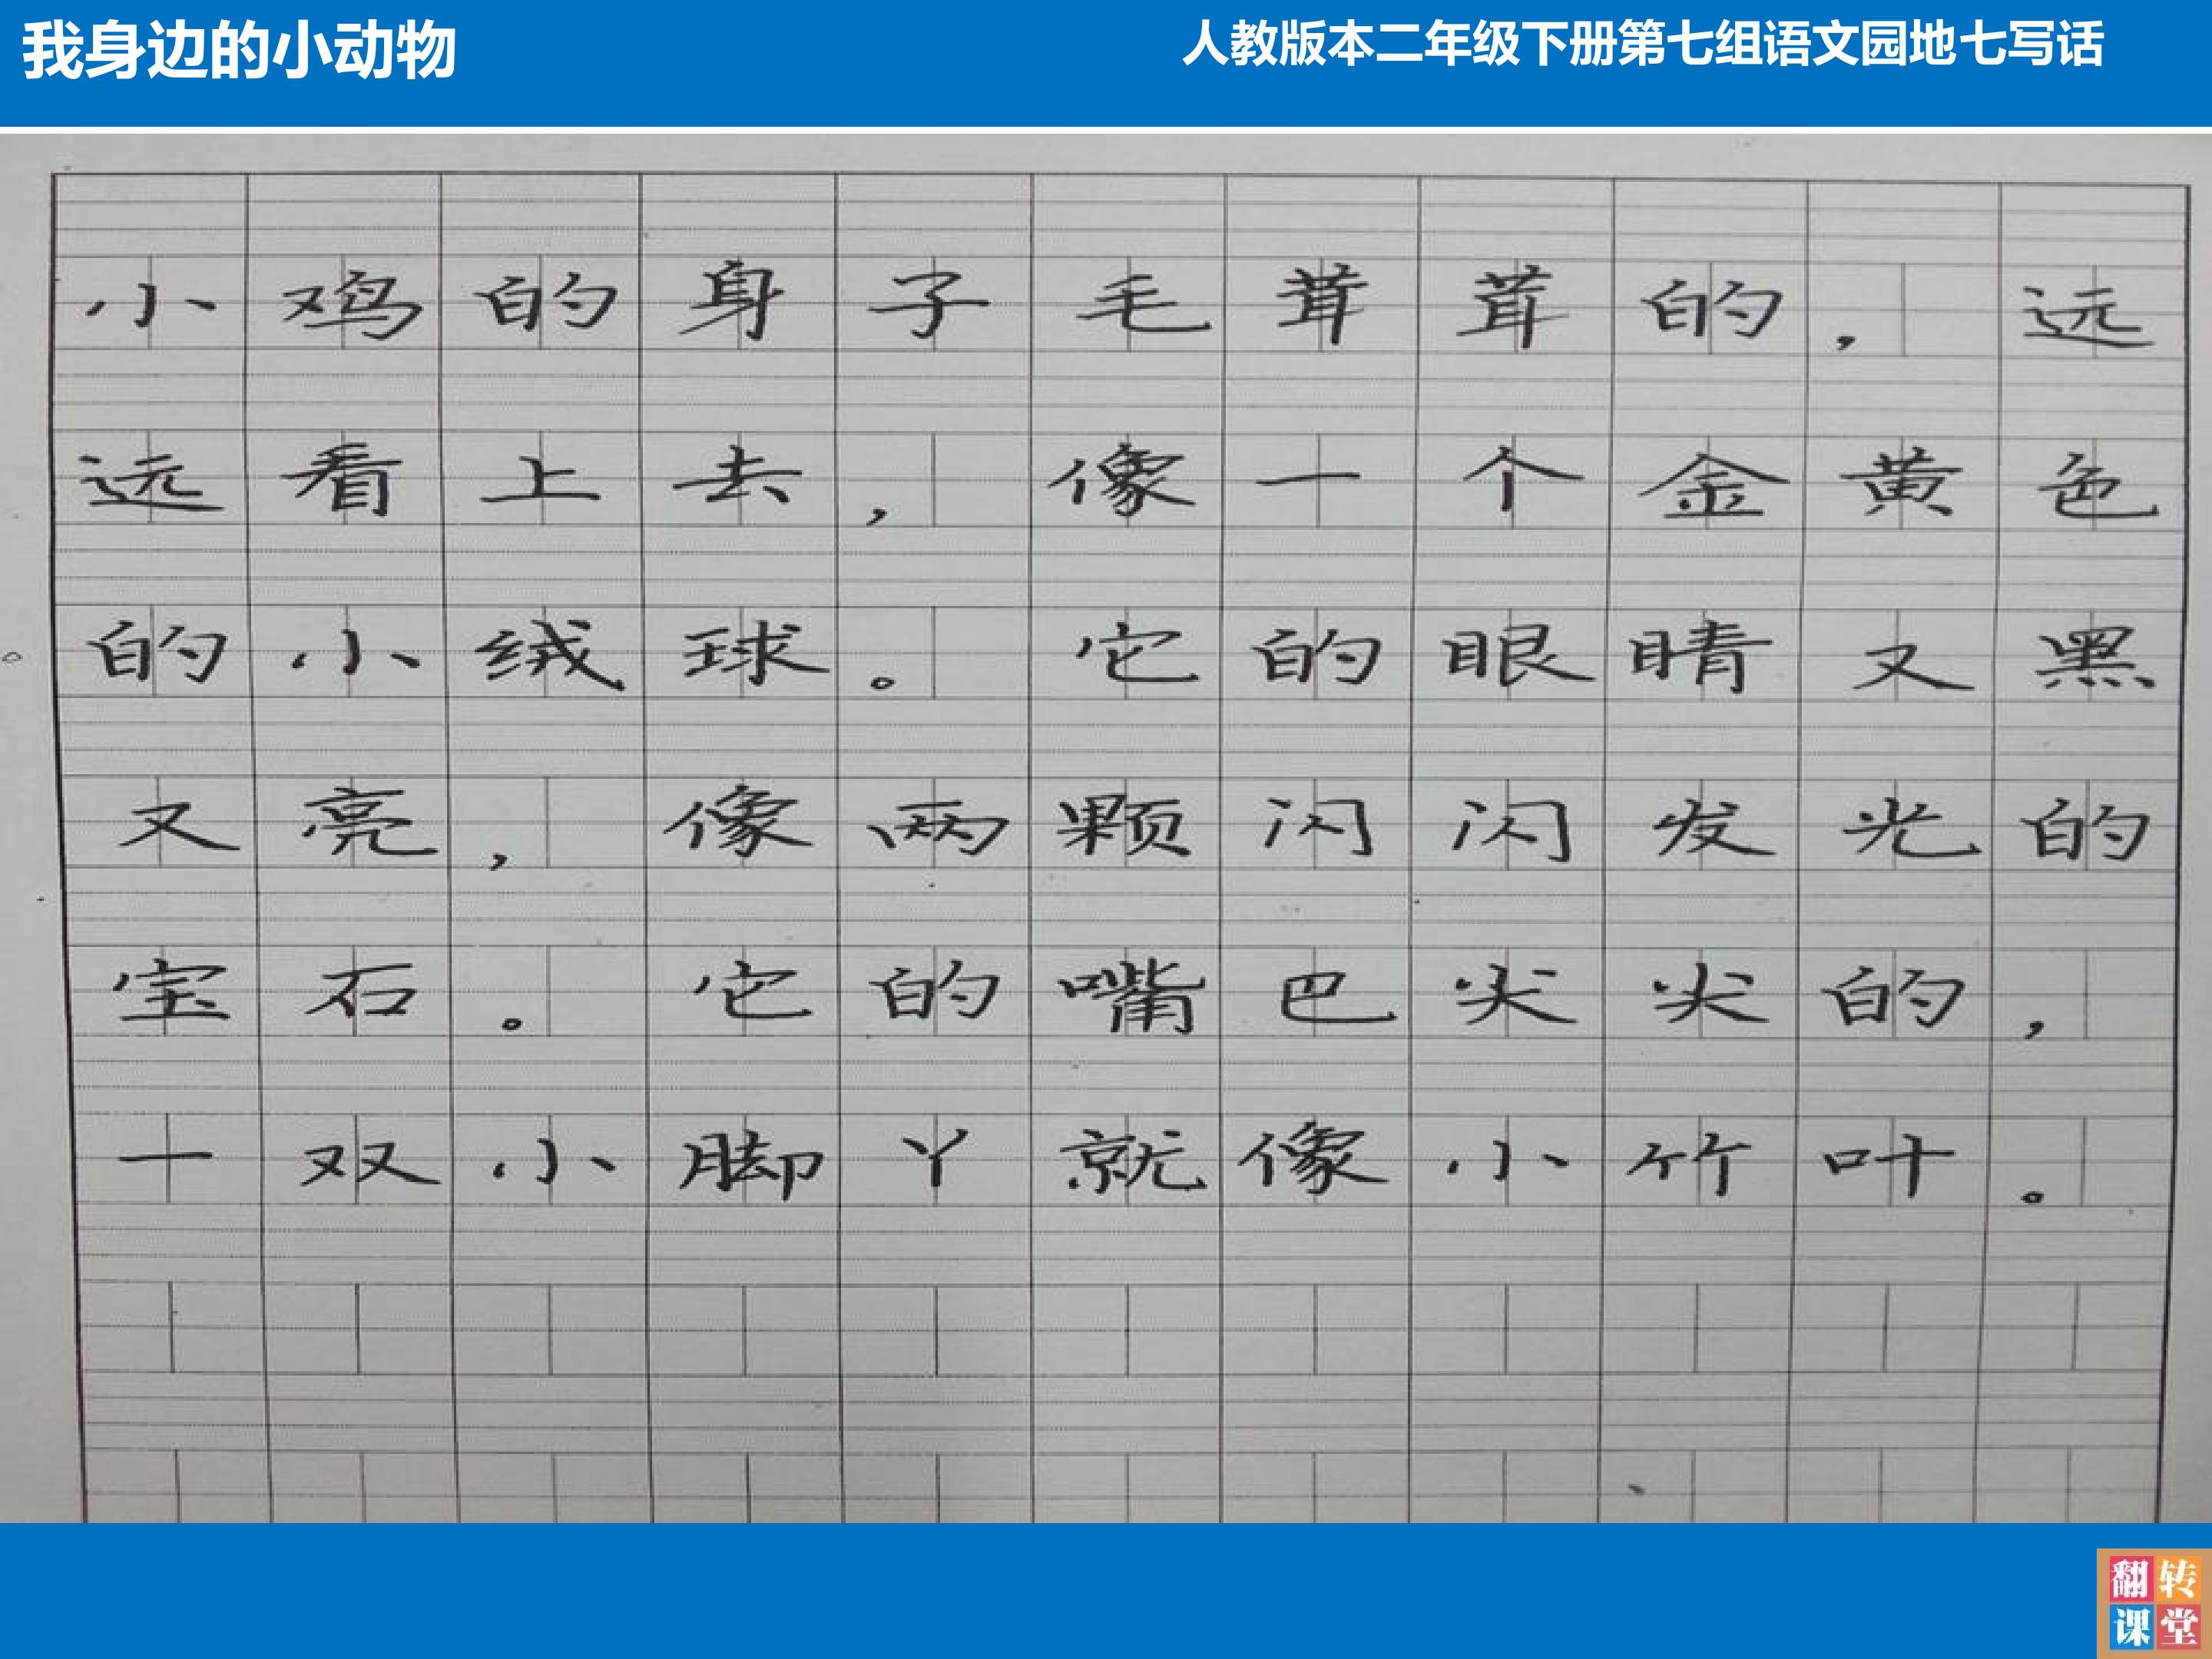 我身边的小动物
人教版本二年级下册第七组语文园地七写话
小鸡的身子毛茸茸的，远
远看上去，像一个金黄色
的小绒球。它的眼睛又黑
又亮，像两颗闪闪发光的
宝石。它的嘴巴尖尖的，
一双小脚丫就像小竹叶。
翻转
课堂